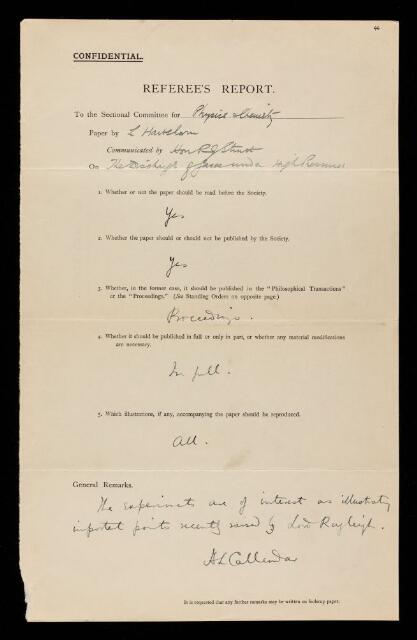 44
CONFIDENTIAL.
REFEREE'S REPORT.
To the Sectional Committee for Physics & Chemistry
Paper by L Hartshorn
Communicated by Hon R J Strutt
On The Discharge of Gases under High Pressures
1. Whether or not the paper should be read before the Society.
Yes
2. Whether the paper should or should not be published by the Society.
Yes
3. Whether, in the former case, it should be published in the "Philosophical Transactions"
or the "Proceedings." (See Standing Orders on opposite page.)
Proceedings.
4. Whether it should be published in full or only in part, or whether any material modifications
are necessary.
In full.
5. Which illustrations, if any, accompanying the paper should be reproduced.
All.
General Remarks.
The experiments are of interest as illustrating
important points recently raised by Lord Rayleigh.
H L Callendar
It is requested that any further remarks may be written on foolscap paper.